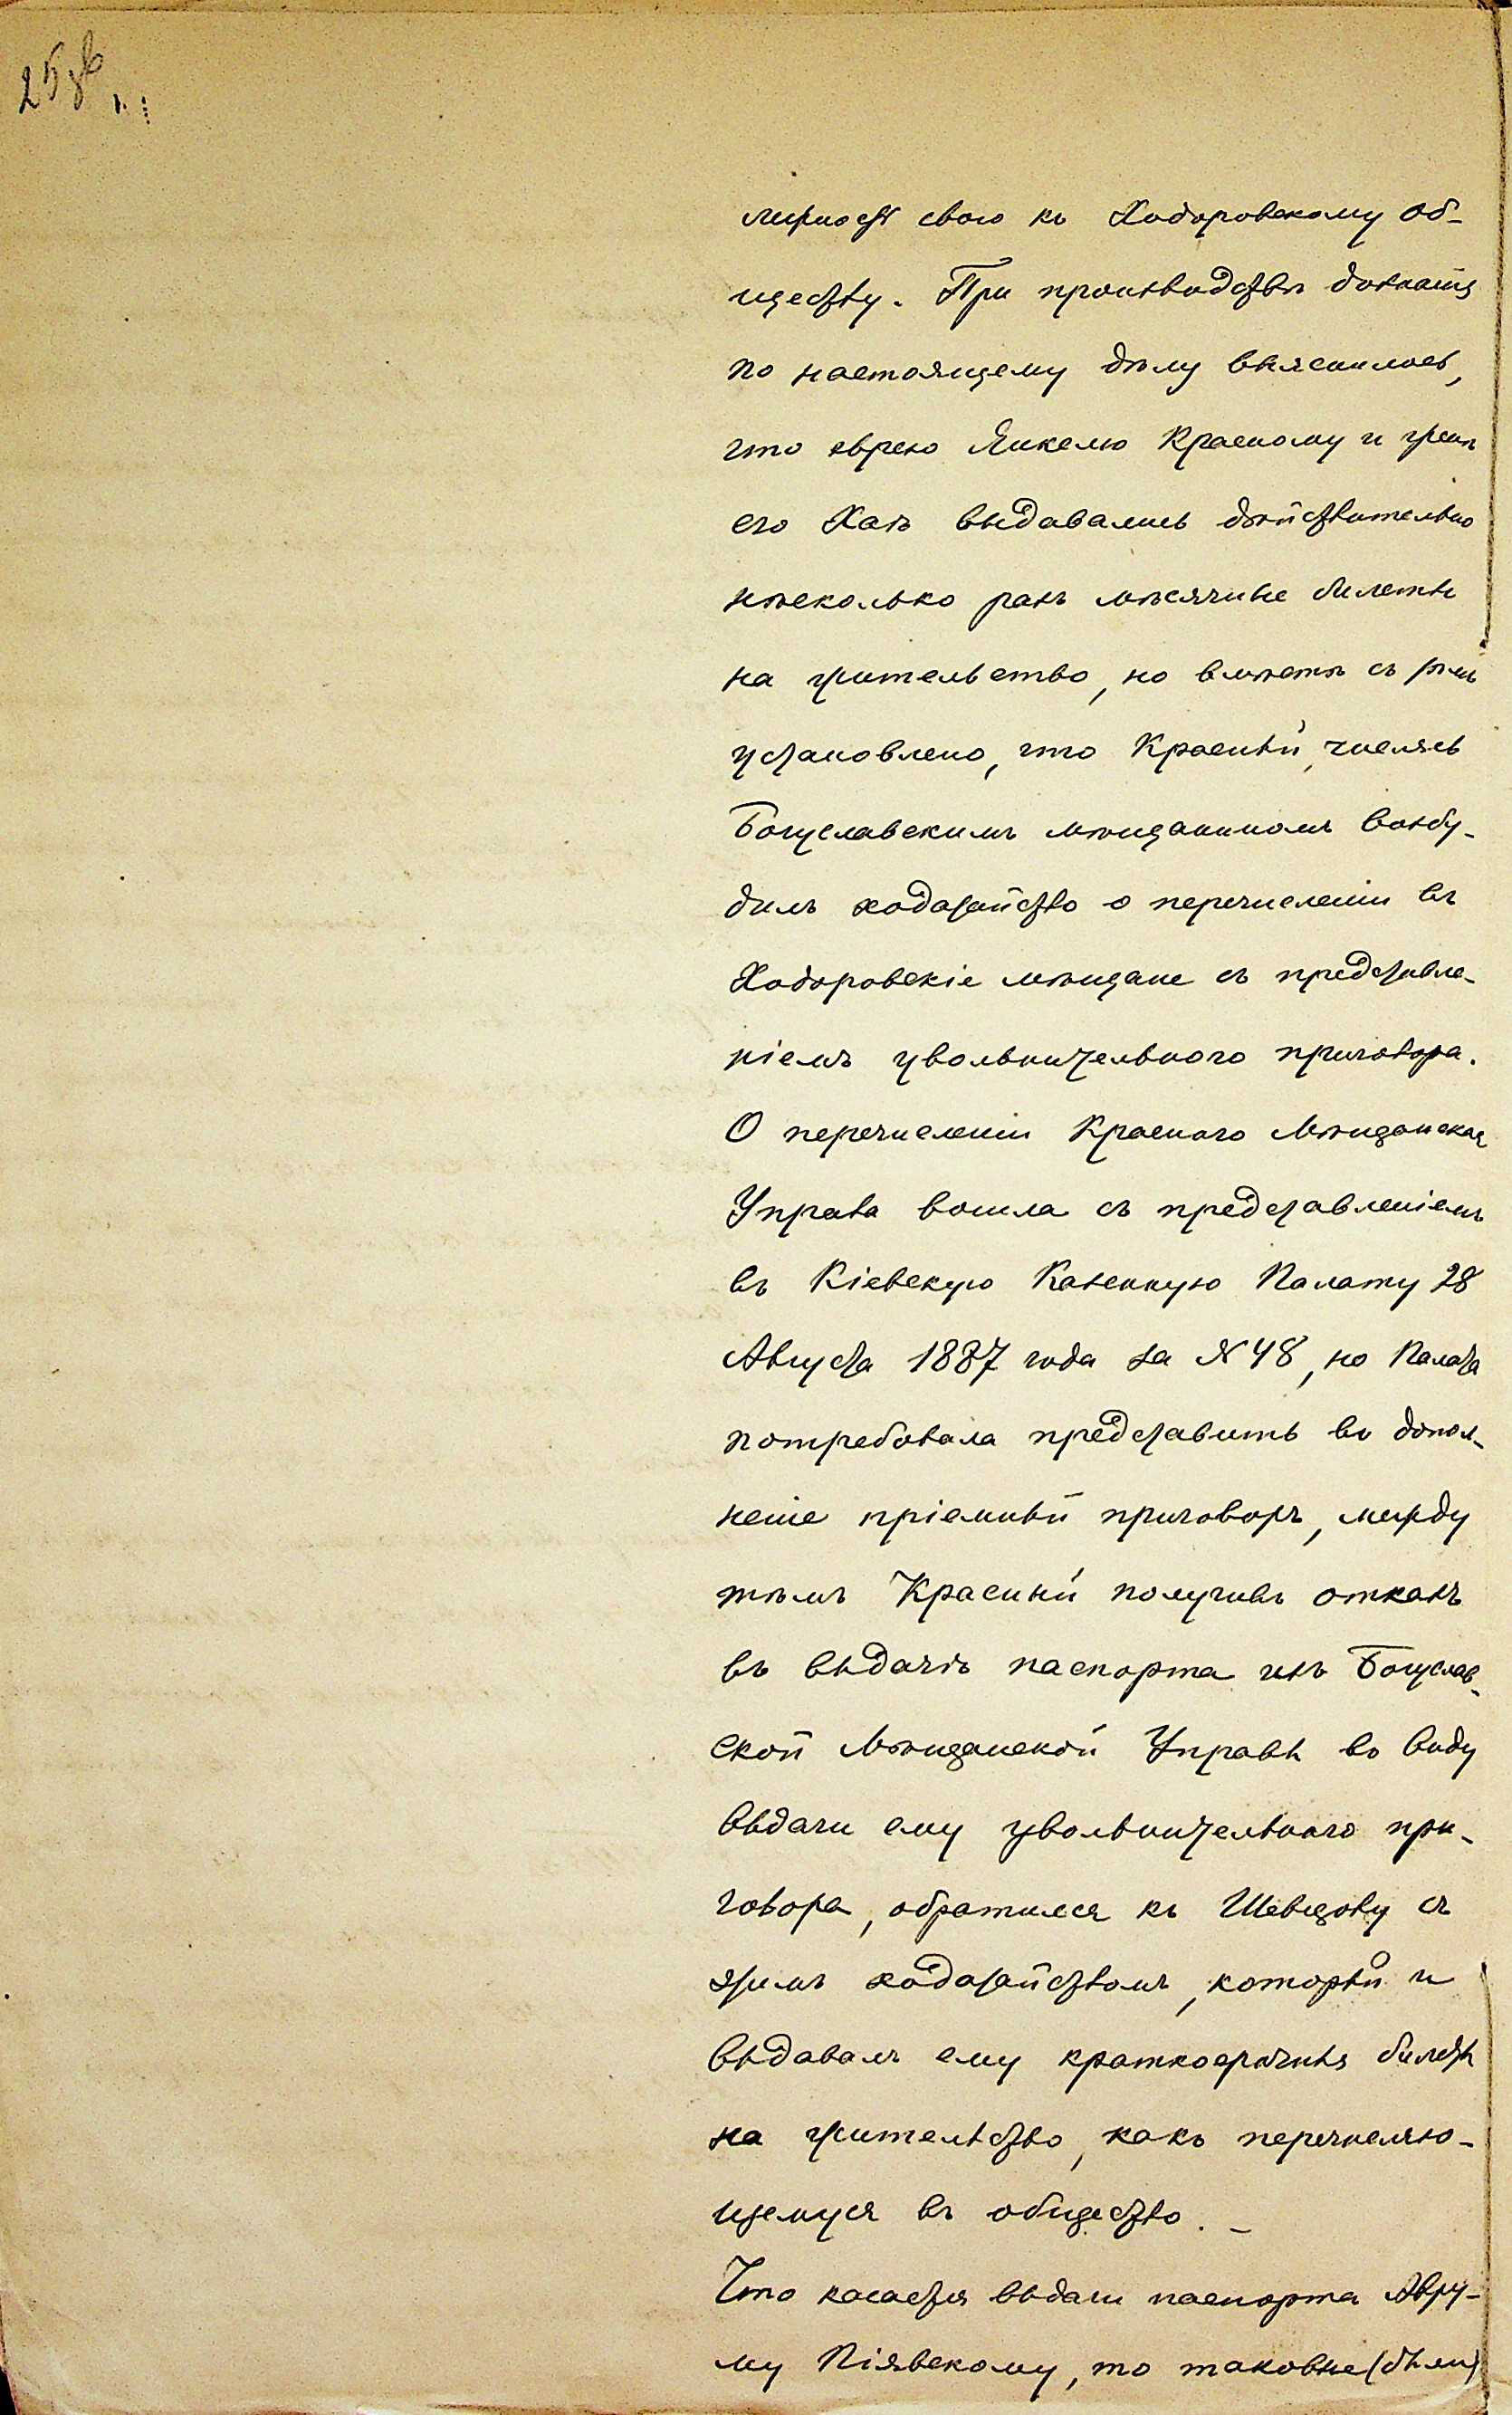 лежность свою къ Ходоровскому об-
ществу. При производствѣ дознанія
по настоящему дѣлу выяснилось,
что еврею Янкелю Красному и женѣ
его Хаѣ выдавались дѣйствительно
нѣсколько разъ мѣсячные билеты
на жительство, но вмѣстѣ съ тѣмъ
установлено, что Красный, числясь
Богуславскимъ мѣщаниномъ возбу-
дилъ ходатайство о перечисленіи въ
Ходоровскіе мѣщане съ представле-
ніемъ увольнительного приговора.
О перечисленіи Красного Мѣщанская
Управа вошла съ представленіемъ
въ Кіевскую Казенную Палату 28
Августа 1887 года за №48, но Палата
потребовала представить въ допол-
неніе пріемный приговоръ, между
тѣмъ Красный получивъ отказъ
въ выдачѣ паспорта изъ Богуслав-
ской Мѣщанской Управы въ виду
выдачи ему увольнительного при-
говора, обратился къ Шевцову съ
этимъ ходатайствомъ, который и
выдавалъ ему краткосрочные билеты
на жительство, какъ перечисляю-
щемуся въ общество. -
Что касается выдачи паспорта Авру-
му Піявскому, то таковые (были)